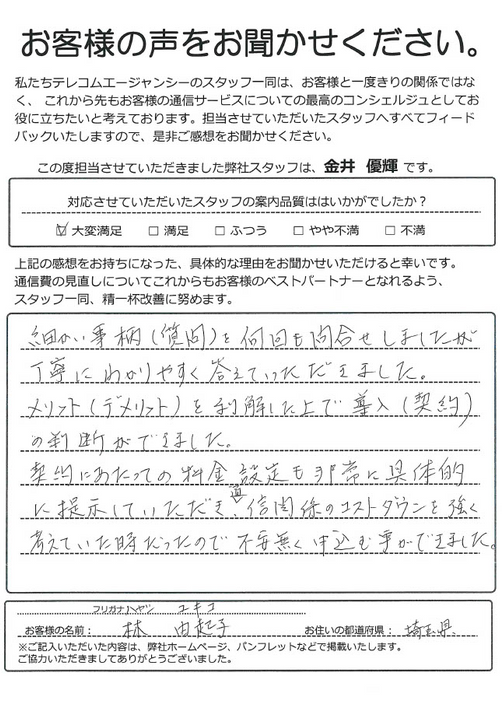 お客様の声をお聞かせください。
私たちテレコムエージャンシーのスタッフ一同は、お客様と一度きりの関係ではな
く、 これから先もお客様の通信サービスについての最高のコンシェルジュとしてお
役に立ちたいと考えております。担当させていただいたスタッフへすべてフィード
バックいたしますので、是非ご感想をお聞かせください。
この度担当させていただきました弊社スタッフは、金井 優輝 です。
対応させていただいたスタッフの案内品質ははいかがでしたか？
☑ 大変満足 □ 満足 □ ふつう □ やや不満 □ 不満
上記の感想をお持ちになった、具体的な理由をお聞かせいただけると幸いです。
通信費の見直しについてこれからもお客様のベストパートナーとなれるよう、
スタッフ一同、精一杯改善に努めます。
細かい事柄(質問)を何回も問合せしましたが
丁寧にわかりやすく答えていただきました。
メリット(デメリット)を利解した上で導入(契約)
の判断ができました。
契約にあたっての料金設定も非常に具体的
に提示していただき通信関係のコストダウンを強く
考えていた時だったので不安無く申込む事ができました。
フリガナ ハヤシ ユキコ
お客様の名前： 林 由起子 お住いの都道府県： 埼玉県
※ご記入いただいた内容は、弊社ホームページ、パンフレットなどで掲載いたします。
ご協力いただきましてありがとうございました。